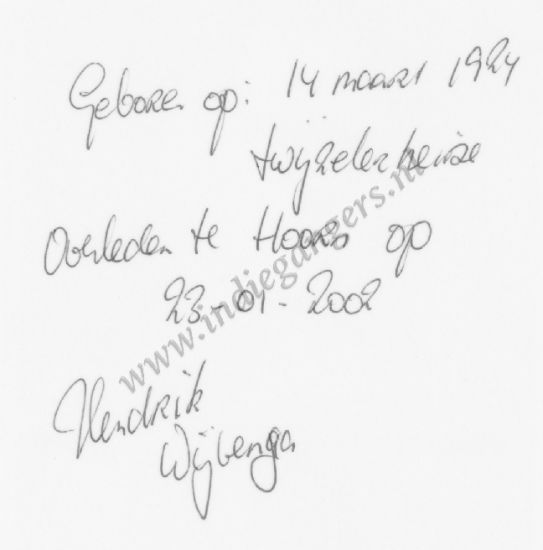 Geboren op: 14 maart 1924
twijzelerheide
Overleden te Hoorn op
23-01-2002
Hendrik
Wijbenga
www.indiegangers.nl